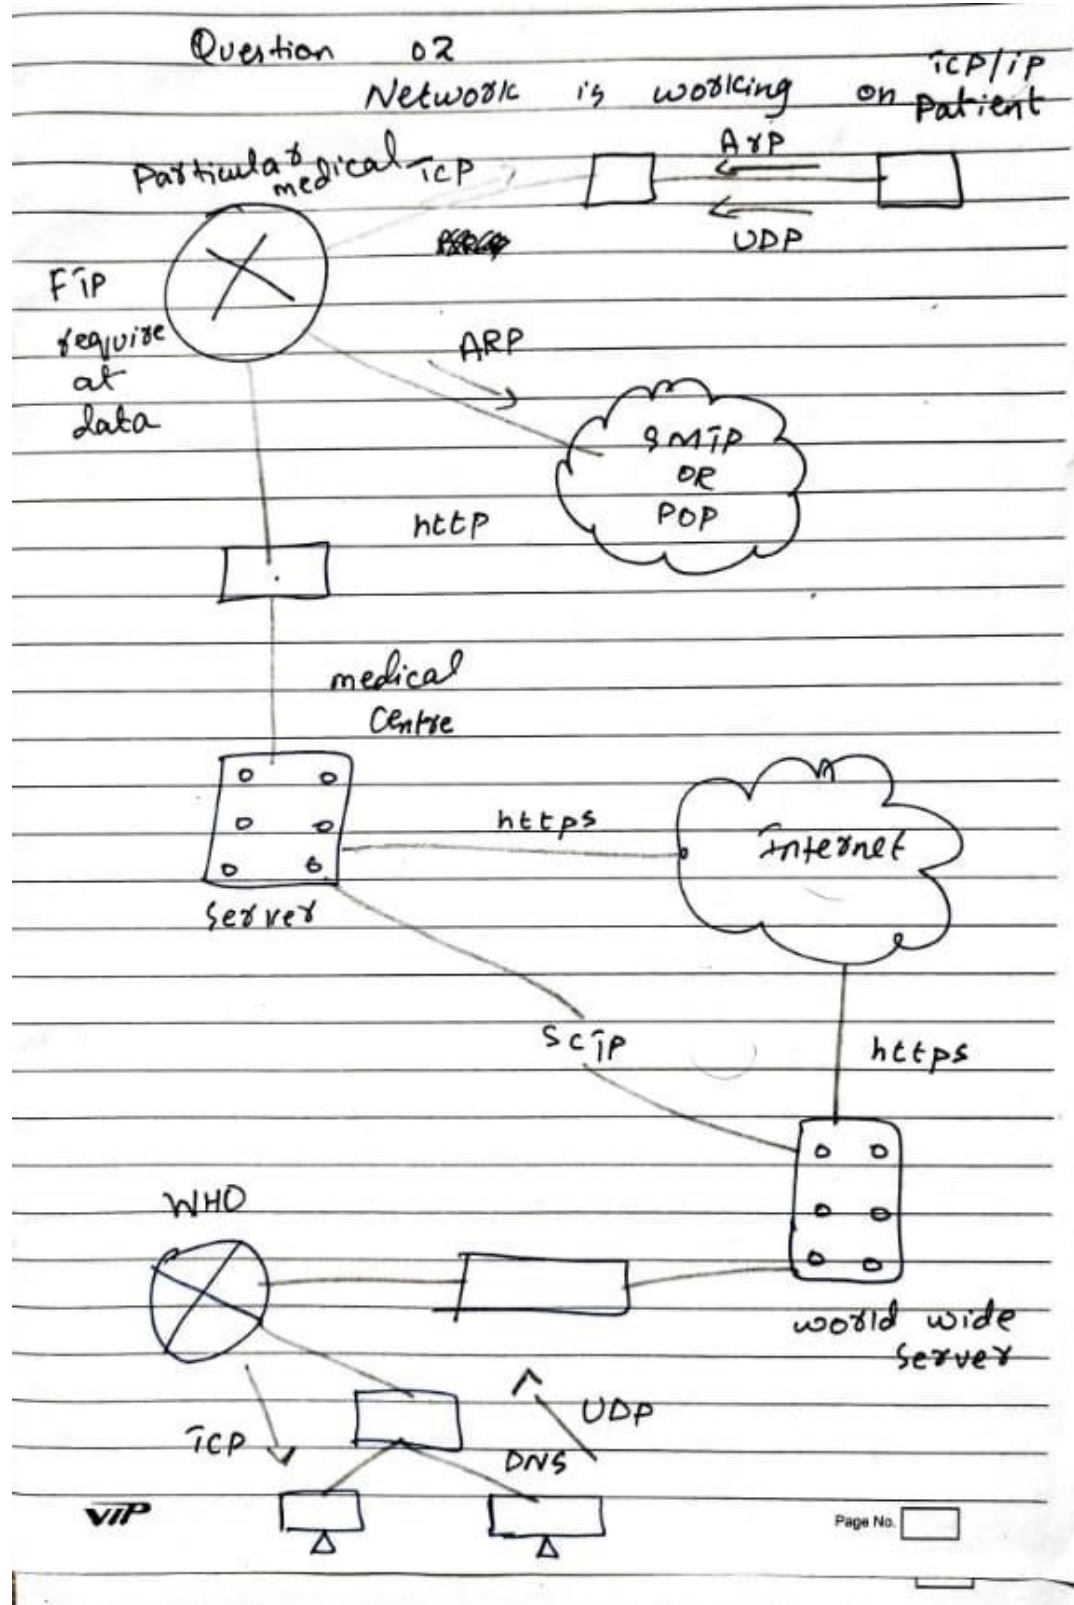 Question 02
Network is working on TCP/IP
Patient
Particular
medical
TCP
ArP
UDP
FTP
require
at
data
ARP
SMTP
OR
POP
http
medical
Centre
https
Internet
Server
SCTP
https
WHO
world wide
Server
UDP
TCP
DNS
VIP
Page No.